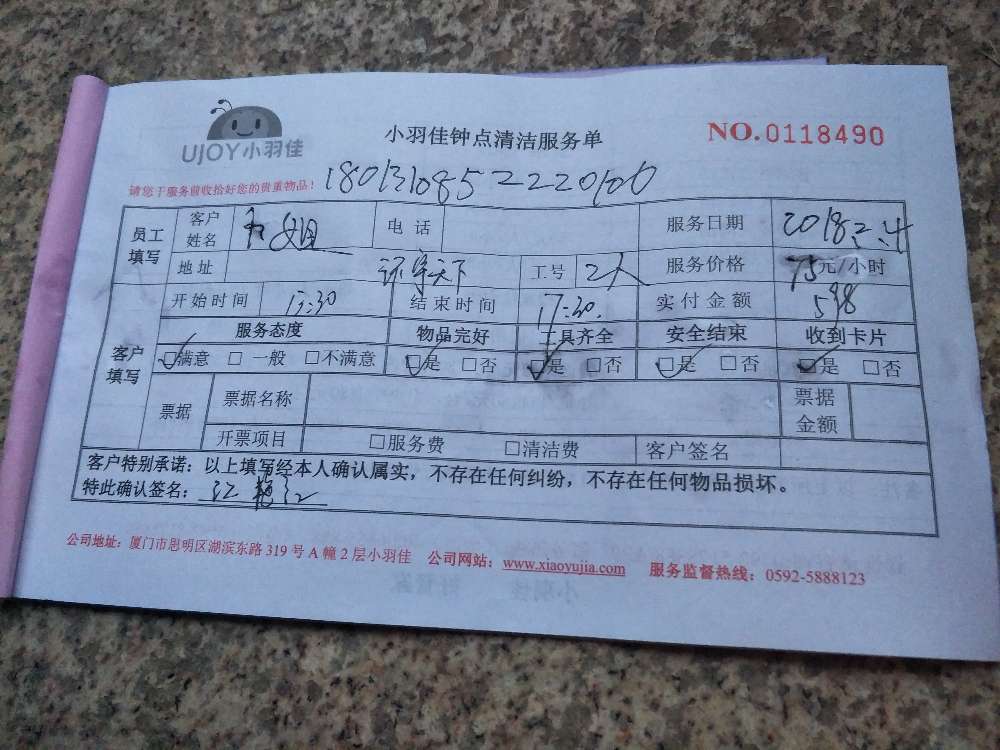 UJOY小羽佳
小羽佳钟点清洁服务单
NO.0118490
请您于服务前收拾好您的贵重物品!
1801310852220100
员工填写 客户姓名 姐 电话 服务日期 2018.2.4
地址 天下 工号 2人 服务价格 75元/小时
客户填写 开始时间 13:30 结束时间 17:30. 实付金额 598
服务态度 物品完好 工具齐全 安全结束 收到卡片
☑满意 □一般 □不满意 ☑是 □否 ☑是 □否 ☑是 □否 ☑是 □否
票据 票据名称 票据金额
开票项目 □服务费 □清洁费 客户签名
客户特别承诺:以上填写经本人确认属实,不存在任何纠纷,不存在任何物品损坏。
特此确认签名:江艳江
公司地址:厦门市思明区湖滨东路 319 号 A 幢 2 层小羽佳 公司网站:www.xiaoyujia.com 服务监督热线:0592-5888123